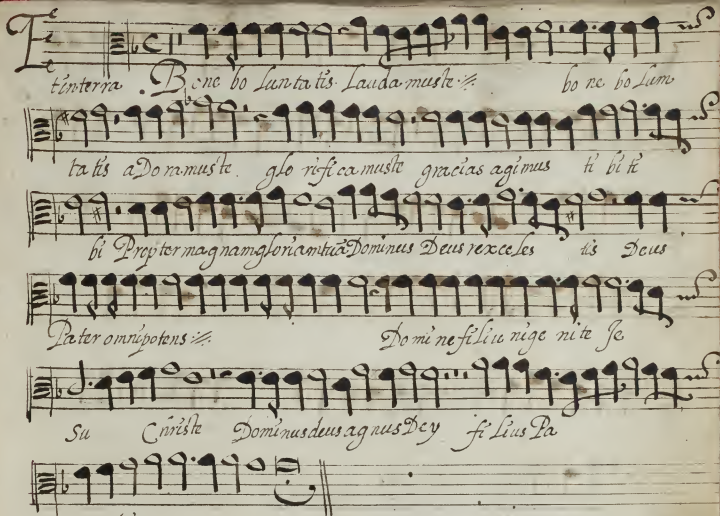 Et in terra Bone boluntatis Laudamuste bone bolum
tatis aDoramuste glorificamuste gracias agimus tibi ti
bi Propter magnam gloriam tuã Dominus Deus rex celes tis Deus
Pater omnipotens Domine filiu nigenite Je
Su Christe Dominus deus agnus Dey filius Pa